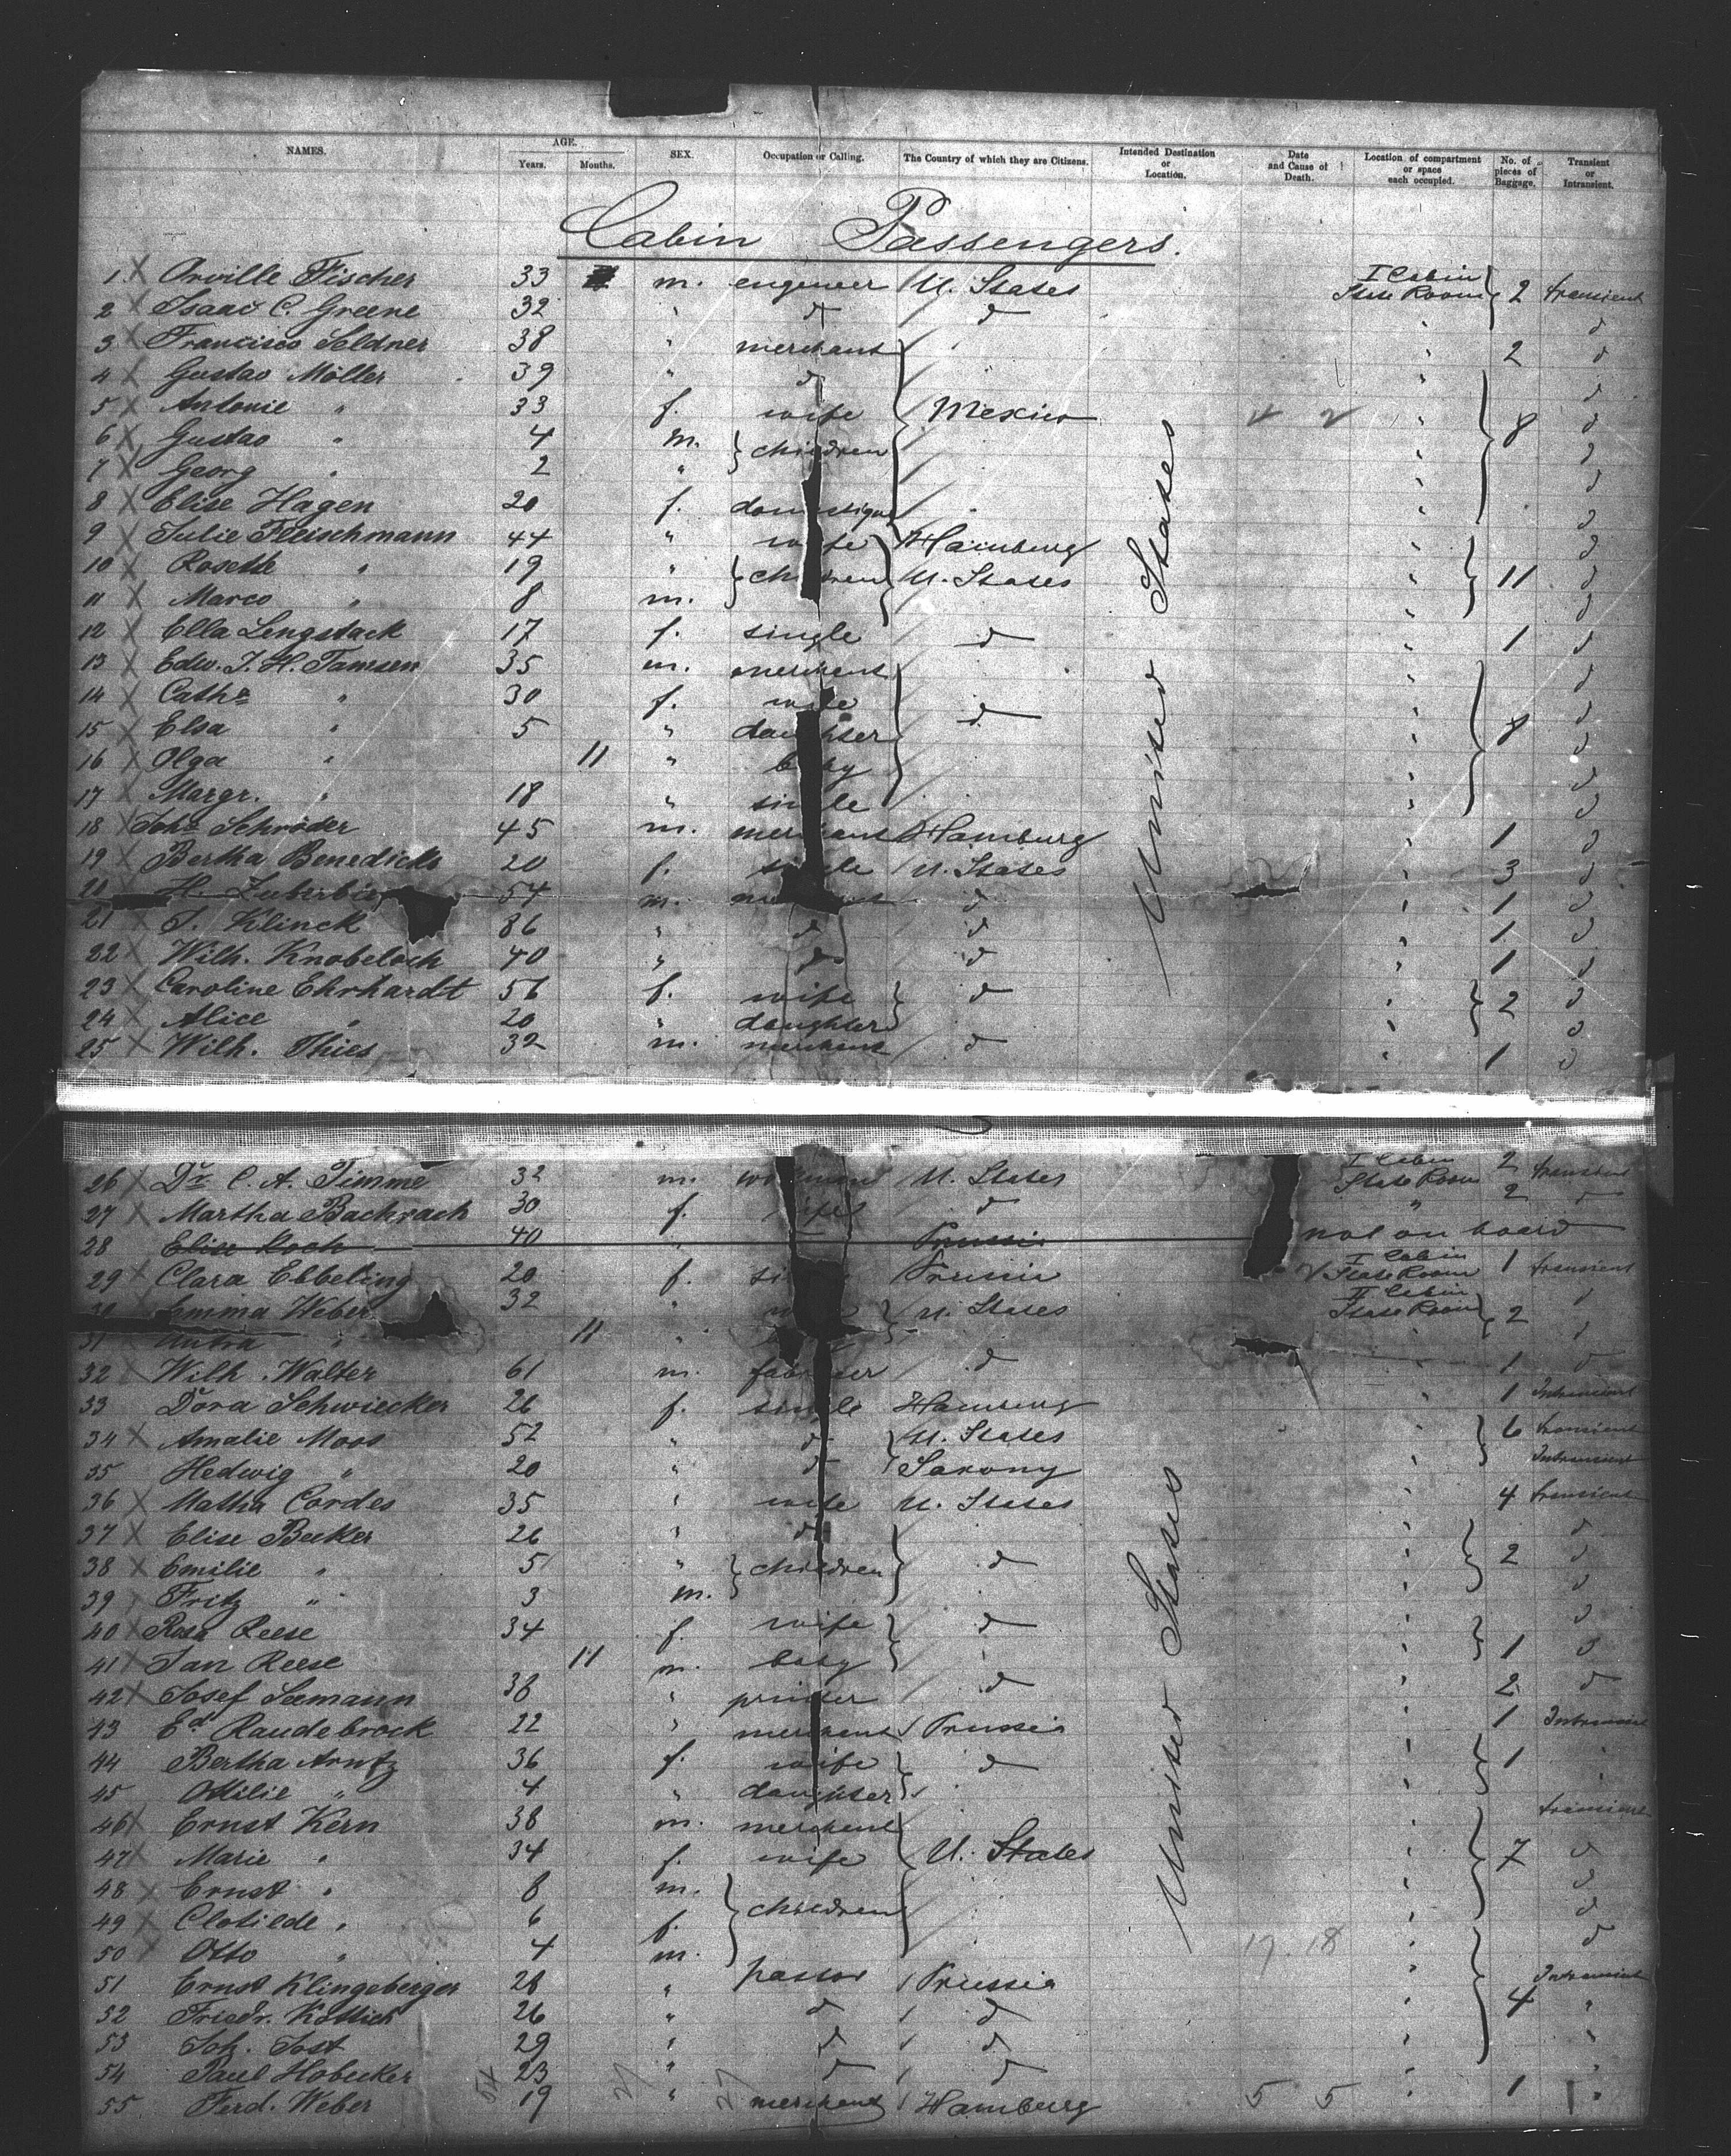 NAMES. AGE. Years. Months. SEX. Occupation or Calling. The Country of which they are Citizens. Intended Destination or Location. Date and Cause of Death. Location of compartment or space each occupied. No. of pieces of Baggage. Transient or Intransient.
Cabin Passengers.
1 X Orville Fischer 33 m. engeneer U. States I Cabin State Room 2 transient
2 X Isaac C. Greene 32 " d d " d
3 X Francisco Seldner 38 " merchant " 2 d
4 X Gustav Möller 39 " d " d
5 X Antonie " 33 f. wife Mexico " 8 d
6 X Gustav " 4 m. children " d
7 X Georg " 2 " " d
8 X Elise Hagen 20 f. domestique " d
9 X Julie Fleischmann 44 " wife Hamburg " d
10 X Rosette " 19 " children U. States " 11 d
11 X Marco " 8 m. " d
12 X Ella Lengstack 17 f. single d " 1 d
13 X Edw. J. H. Tamsen 35 m. merchent " d
14 X Catha " 30 f. wife d " d
15 X Elsa " 5 " daughter " 8 d
16 X Olga " 11 " baby " d
17 X Margr. " 18 " single " d
18 X Johs Schröder 45 m. merchant Hamburg " 1 d
19 X Bertha Benedicks 20 f. single U. States " 3 d
20 H. 54 m. d " 1 d
21 X J. Klinck 86 " d d " 1 d
22 X Wilh. Knobeloch 40 " d d " 1 d
23 X Caroline Ehrhardt 56 f. wife d " 2 d
24 X Alice " 20 " daughter " d
25 X Wilh. Thies 32 m. merchent d " 1 d
United States
26 X Dr C. A. Timme 32 m. U. States I Cabin State Room 2 transient
27 X Martha Bachrach 30 f. d " 2 d
28 Elise Koch 40 " Prussia not on board
29 X Clara Ebbeling 20 f. Prussia I Cabin State Room 1 transient
30 Emma Weber 32 " U. States II Cabin State Room 2 d
31 " 11 " " d
32 X Wilh. Walter 61 m. d " 1 d
33 Dora Schwiecker 26 f. single Hamburg " 1 Intransient
34 X Amalie Moos 52 " d U. States " 6 transient
35 Hedwig " 20 " d Saxony Intransient
36 X Matha Cordes 35 " wife U. States " 4 transient
37 X Elise Becker 26 " d " d
38 X Emilie " 5 " children d " 2 d
39 Fritz " 3 m. " d
40 X Rosa Reese 34 f. wife d " d
41 X Jan Reese 11 m. baby " 1 d
42 X Josef Seemann 38 " printer d " 2 d
43 Ed Raudebrock 22 " merchent Prussia " 1 Intransient
44 Bertha Arntz 36 f. wife d " 1 "
45 Ottilie " 4 " daughter " "
46 X Ernst Kern 38 m. merchent " transient
47 X Marie " 34 f. wife U. States " 7 d
48 X Ernst " 8 m. children " d
49 X Clotilde " 6 f. " d
50 Otto " 4 m. 17 18 " d
51 Ernst Klingeberger 28 " pastor Prussia " Intransient
52 Friedr. Kottich 26 " d d " 4 "
53 Joh. Jost 29 " d d " "
54 Paul Hobecker 23 " d d " "
55 Ferd. Weber 19 " merchent Hamburg 5 5 " 1 "
United States